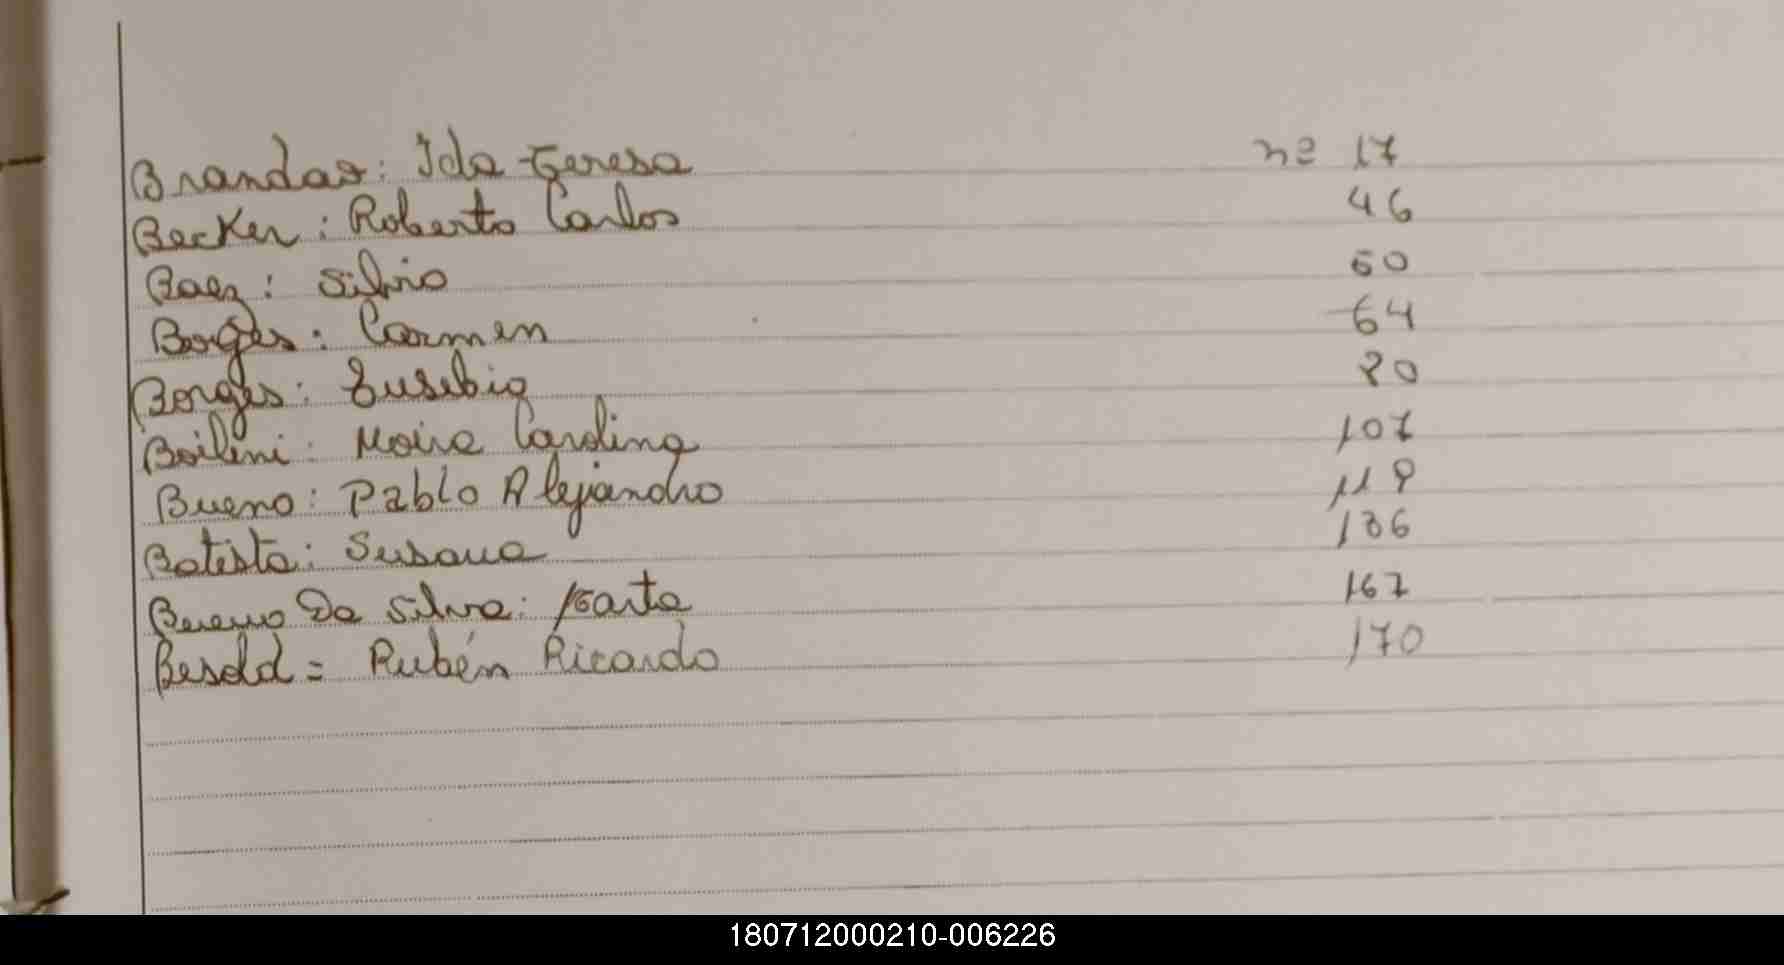 Brandao: Ida Teresa nº 17
Becker: Roberto Carlos 46
Baez: Silvio 60
Borges: Carmen 64
Borges: Eusebio 80
Boilini: Moira Carolina 107
Bueno: Pablo Alejandro 118
Batista: Susana 136
Bueno Da Silva: Marta 167
Besold = Rubén Ricardo 170
180712000210-006226